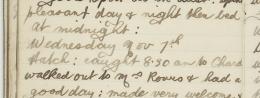 pleasant day & night then bed
at midnight:
Wednesday Nov 7th
Hatch: caught 8:30 am to Chard
walked out to Mrs Rowes & had a
good day: made very welcome &